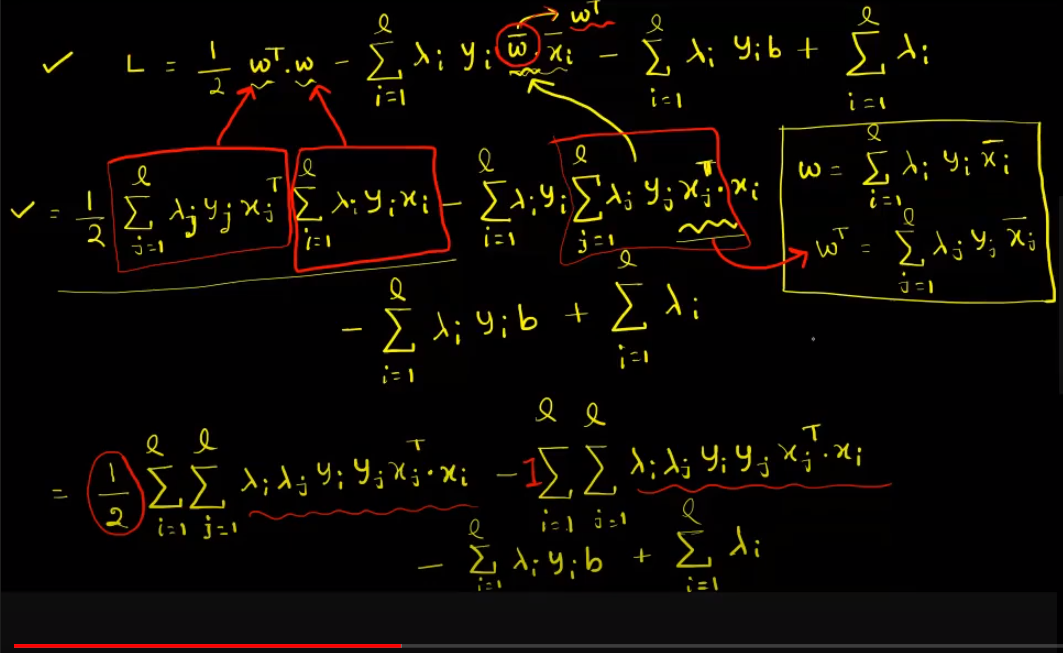 ✓ L = 1/2 w^T.w - Σ_{i=1}^{l} λ_i y_i w̄.x̄_i - Σ_{i=1}^{l} λ_i y_i b + Σ_{i=1}^{l} λ_i
→ w^T
✓ = 1/2 Σ_{j=1}^{l} λ_j y_j x_j^T Σ_{i=1}^{l} λ_i y_i x_i - Σ_{i=1}^{l} λ_i y_i Σ_{j=1}^{l} λ_j y_j x_j^T . x_i
w = Σ_{i=1}^{l} λ_i y_i x̄_i
w^T = Σ_{j=1}^{l} λ_j y_j x̄_j
- Σ_{i=1}^{l} λ_i y_i b + Σ_{i=1}^{l} λ_i
= 1/2 Σ_{i=1}^{l} Σ_{j=1}^{l} λ_i λ_j y_i y_j x_j^T . x_i - 1 Σ_{i=1}^{l} Σ_{j=1}^{l} λ_i λ_j y_i y_j x_j^T . x_i
- Σ_{i=1}^{l} λ_i y_i b + Σ_{i=1}^{l} λ_i